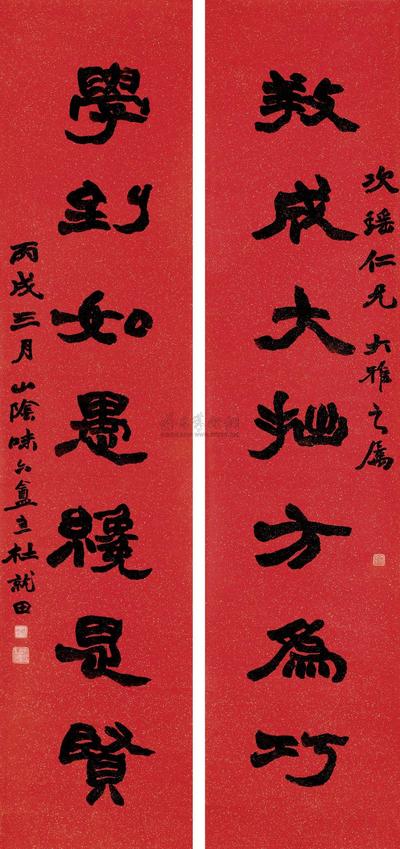 次瑤仁兄大雅之屬
養成大拙方為巧
學到如愚纔是賢
丙戌三月山陰味六盦主杜就田